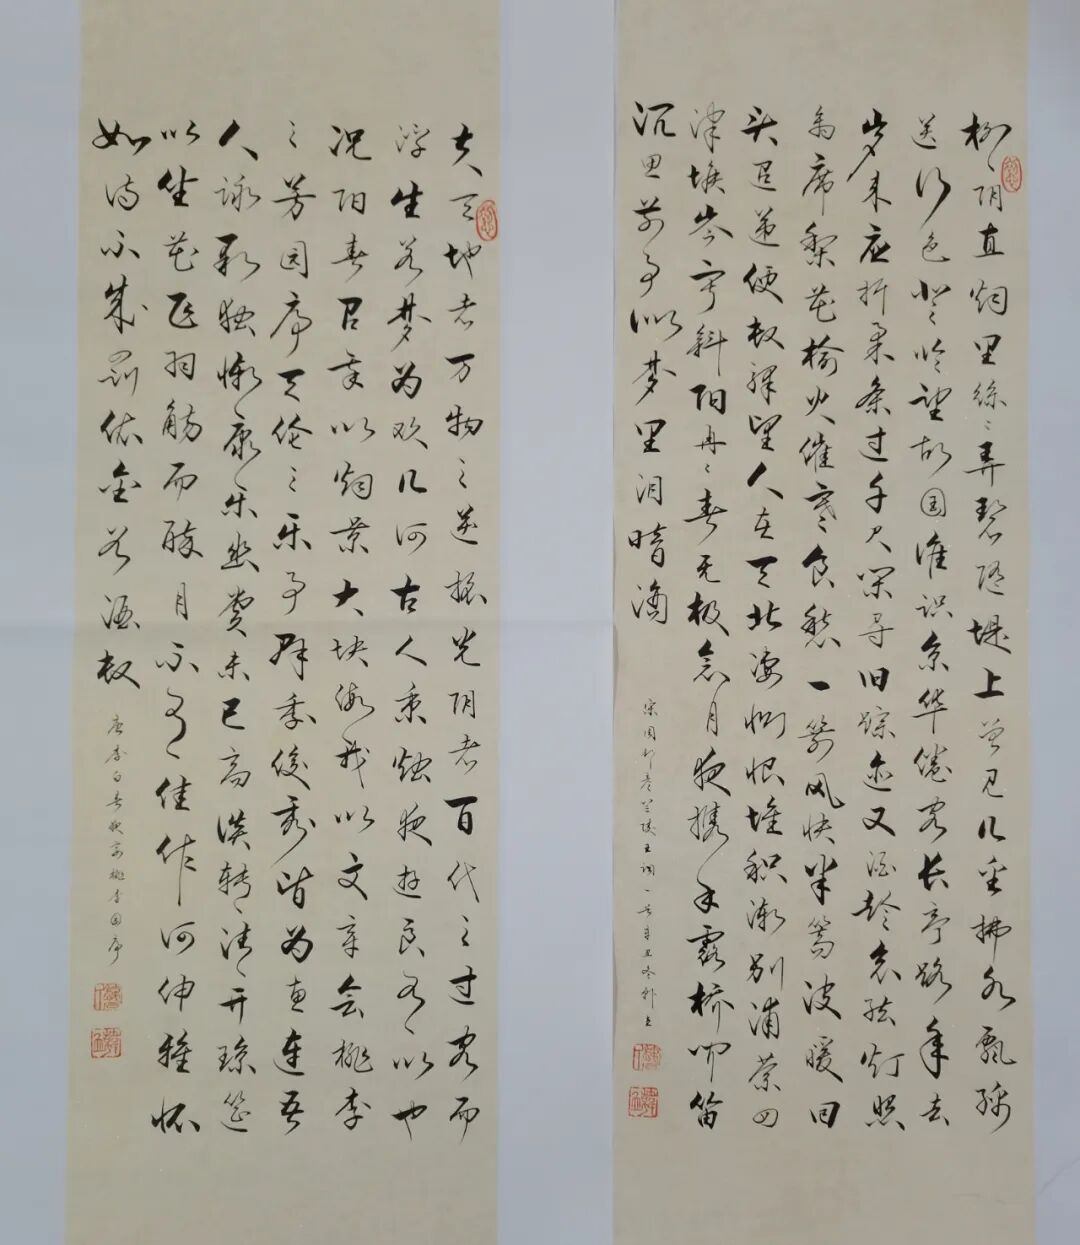 柳阴直烟里丝丝弄碧隋堤上曾见几重拂水飘绵
送行色登临望故国谁识京华倦客长亭路年去
岁来应折柔条过千尺闲寻旧踪迹又酒趁哀弦灯照
离席梨花榆火催寒食愁一箭风快半篙波暖回
头迢递便数驿望人在天北凄恻恨堆积渐别浦萦回
津堠岑寂斜阳冉冉春无极念月榭携手露桥闻笛
沉思前事似梦里泪暗滴
宋周邦彦兰陵王词一首辛丑冬
夫天地者万物之逆旅光阴者百代之过客而
浮生若梦为欢几何古人秉烛夜游良有以也
况阳春召我以烟景大块假我以文章会桃李
之芳园序天伦之乐事群季俊秀皆为惠连吾
人咏歌独惭康乐幽赏未已高谈转清开琼筵
以坐花飞羽觞而醉月不有佳作何伸雅怀
如诗不成罚依金谷酒数
唐李白春夜宴桃李园序